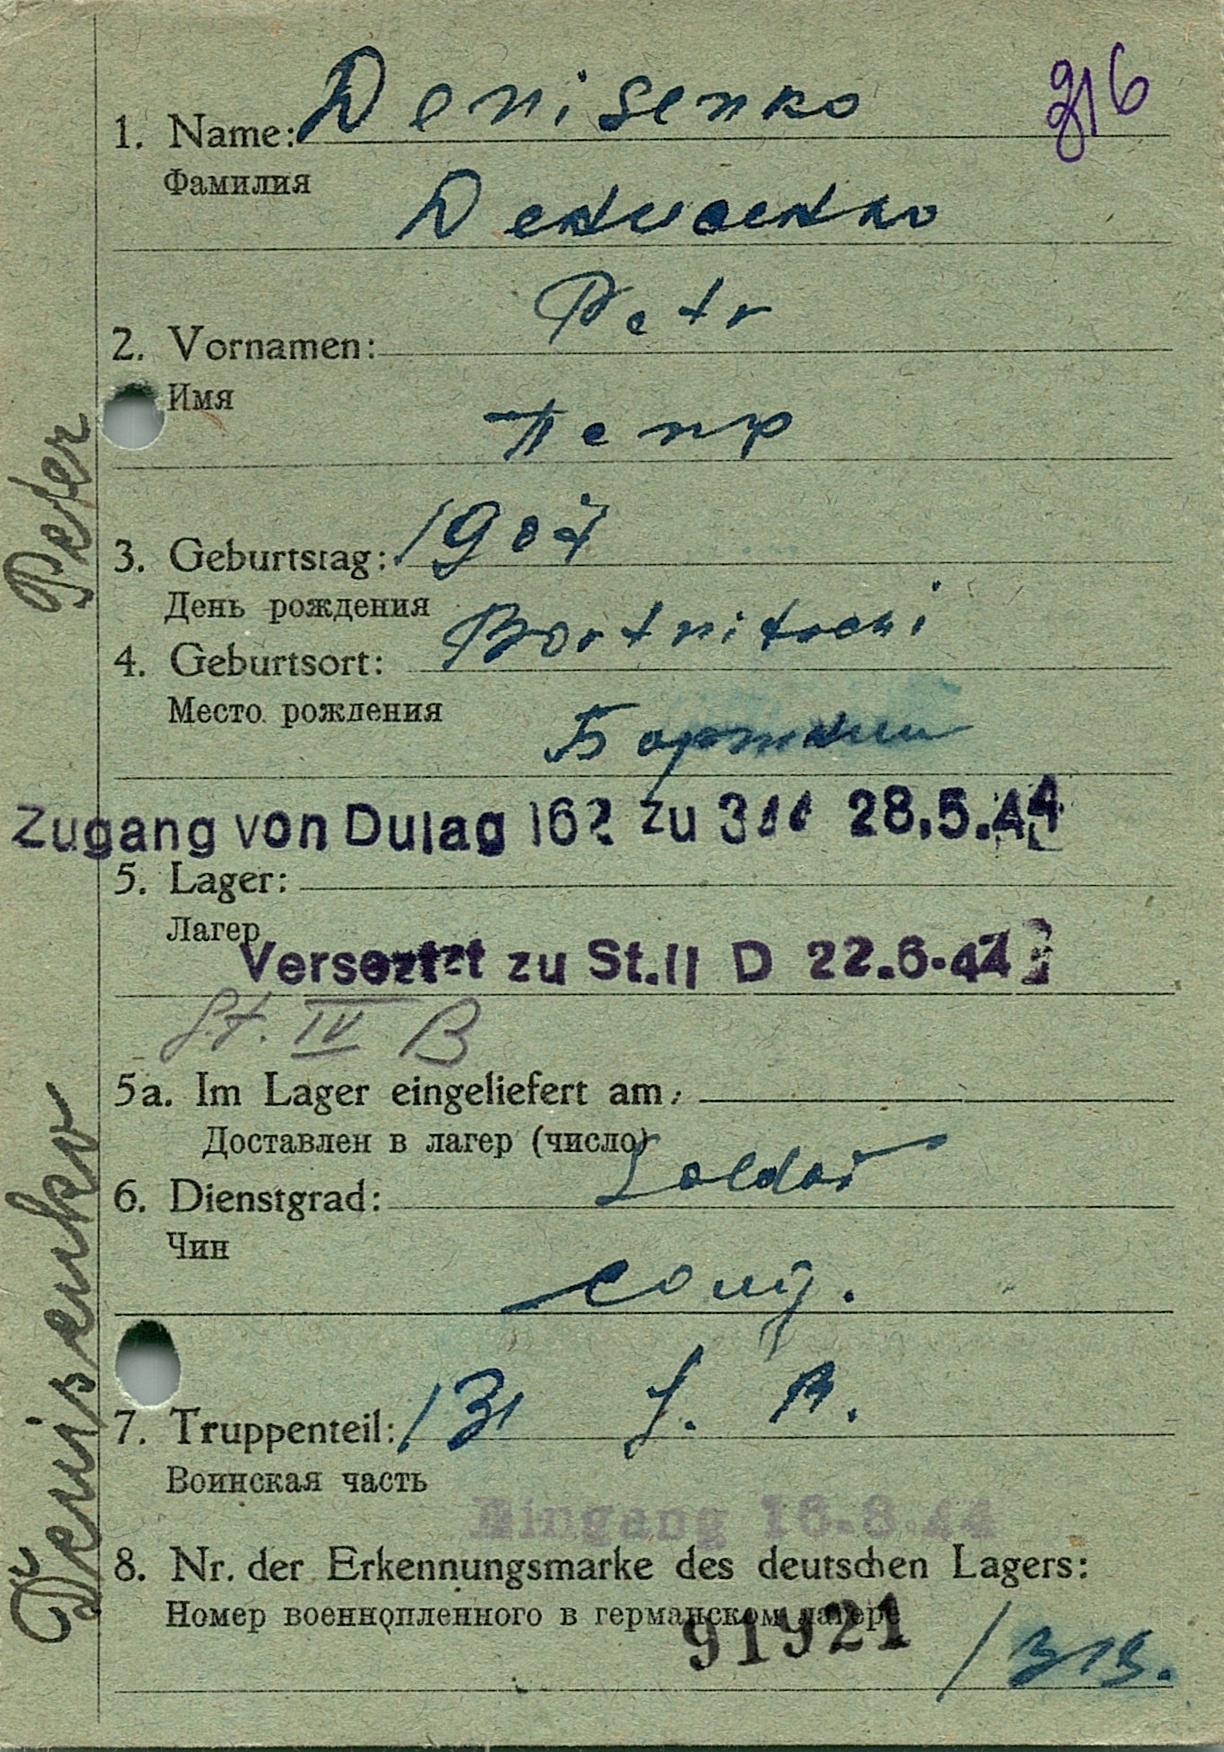 316
1. Name: Denisenko
Фамилия
Денисенко
Petr
2. Vornamen:
Имя
Петр
3. Geburtstag: 1907
День рождения
4. Geburtsort: Bortnitschi
Место рождения
Zugang von Dulag 162 zu 28.5.44
5. Lager:
Лагер
Versetzt zu St. II D 22.6.44
St. IV B
5a. Im Lager eingeliefert am:
Доставлен в лагер (число)
6. Dienstgrad: Soldat
Чин
солд.
7. Truppenteil: 131 J. R.
Воинская часть
Eingang 16.8.44
8. Nr. der Erkennungsmarke des deutschen Lagers:
Номер военнопленного в германском лагере
91921 /
Denisenko Peter